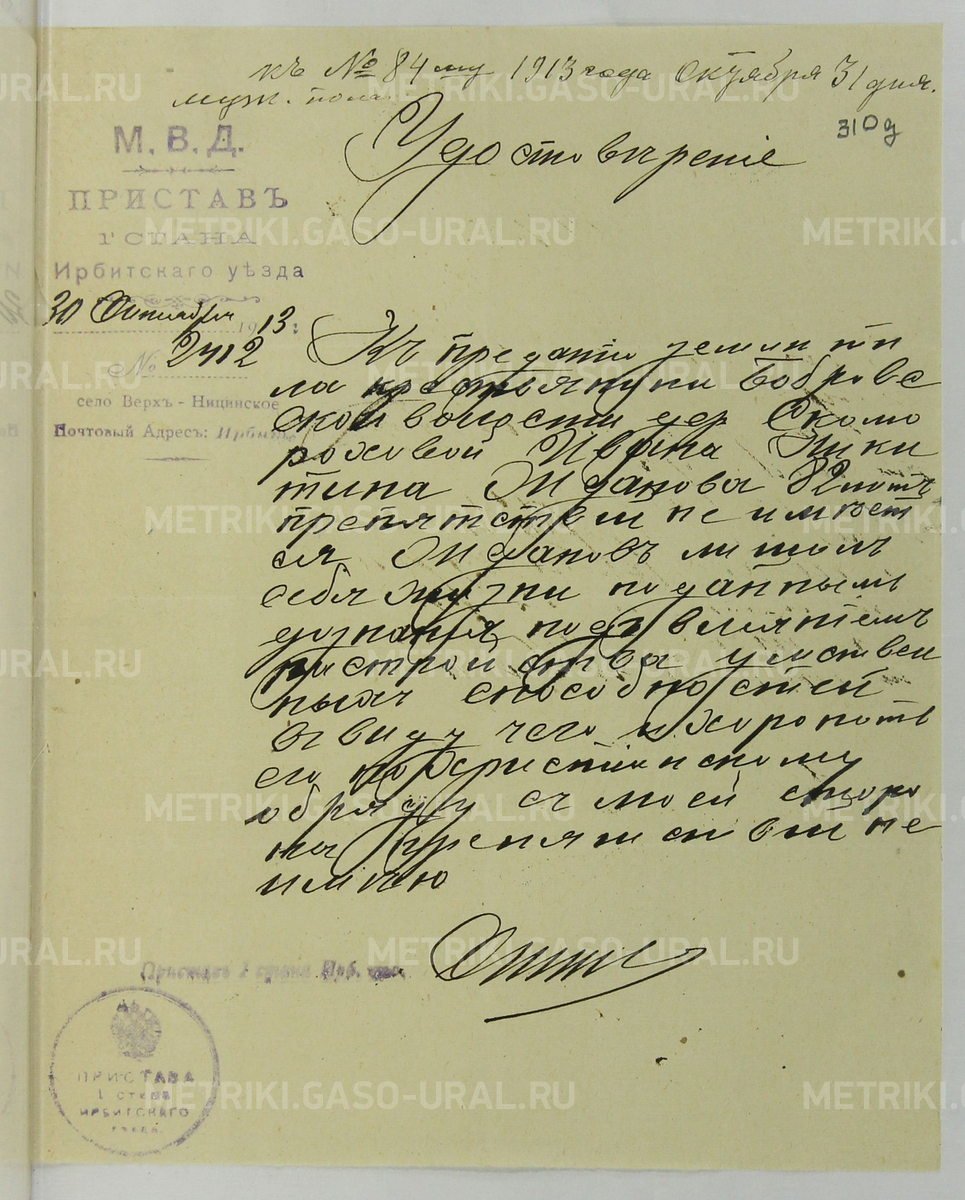 къ № 84му 1913 года Октября 31 дня.
муж. пола
310 д
Удостовѣренiе
М. В. Д.
ПРИСТАВЪ
1 СТАНА
Ирбитскаго уѣзда
30 Октября 1913 г.
№ 2412
село Верх-Ницинское
Почтовый Адресъ: Ирбитъ
Къ преданію земли тѣ
ла крестьянина Бобровс
кой волости дер Скомо
роховой Ивана Ники
тина Жданова 82 лѣтъ
препятствiи не имѣет
ся Ждановъ лишилъ
себя жизни по даннымъ
дознанiя подъ влiянiемъ
разстройства умствен
ныхъ способностей
ввиду чего и хоронить
его по Христiанскому
обряду съ моей сторо
ны препятствiи не
имѣю
Приставъ 1 стана Ирб. уѣзда
ПРИСТАВА
1 СТАНА
ИРБИТСКАГО
УѢЗДА.
METRIKI.GASO-URAL.RU